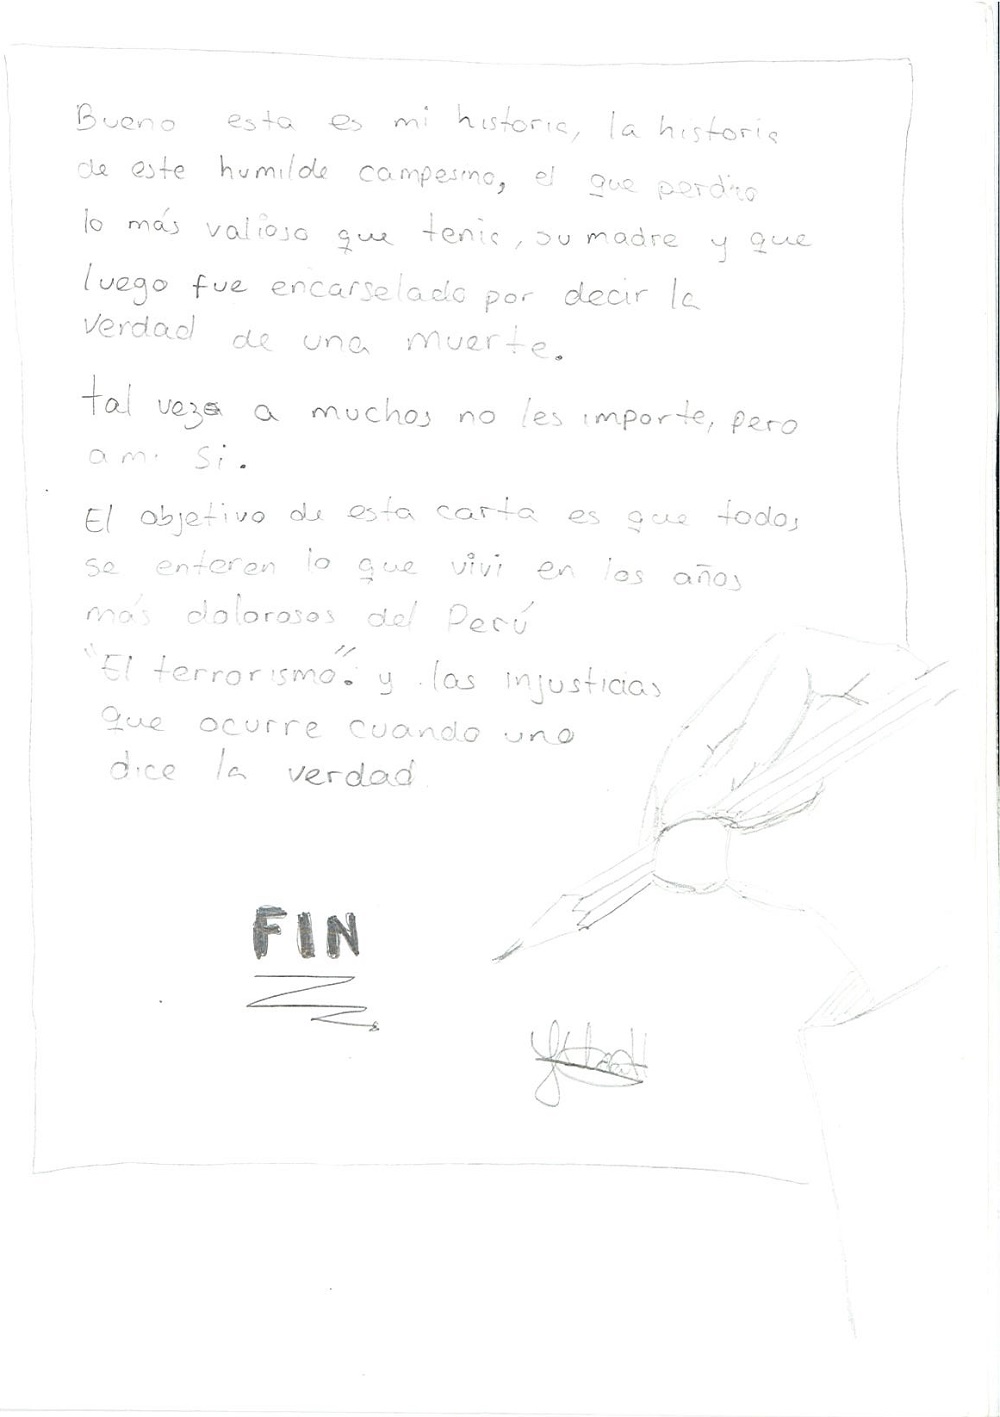 Bueno esta es mi historia, la historia
de este humilde campesino, el que perdio
lo más valioso que tenia, su madre y que
luego fue encarselado por decir la
verdad de una muerte.
tal vez a muchos no les importe, pero
a mi si.
El objetivo de esta carta es que todos
se enteren lo que vivi en los años
más dolorosos del Perú
"El terrorismo". y las injusticias
que ocurre cuando uno
dice la verdad
FIN